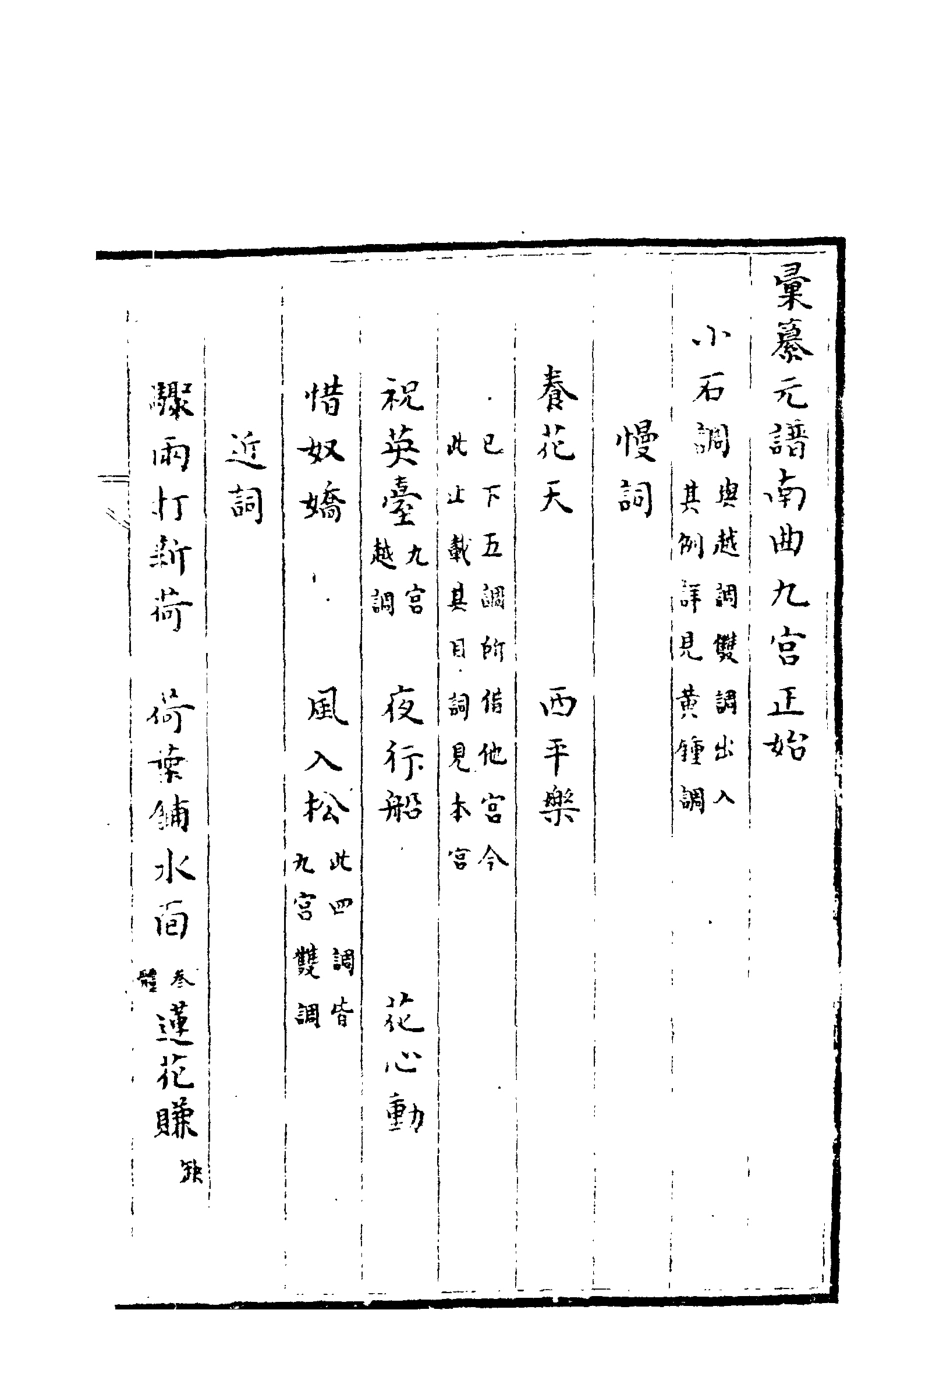 彙纂元譜南曲九宮正始
小石調與越調雙調出入
其例詳見黃鍾調
慢詞
養花天 西平樂
已下五調所借他宮今
此止載其目詞見本宮
祝英臺九宮
越調 夜行船 花心動
惜奴嬌 風入松此四調皆
九宮雙調
近詞
驟雨打新荷 荷葉鋪水面叁
體 蓮花賺缺